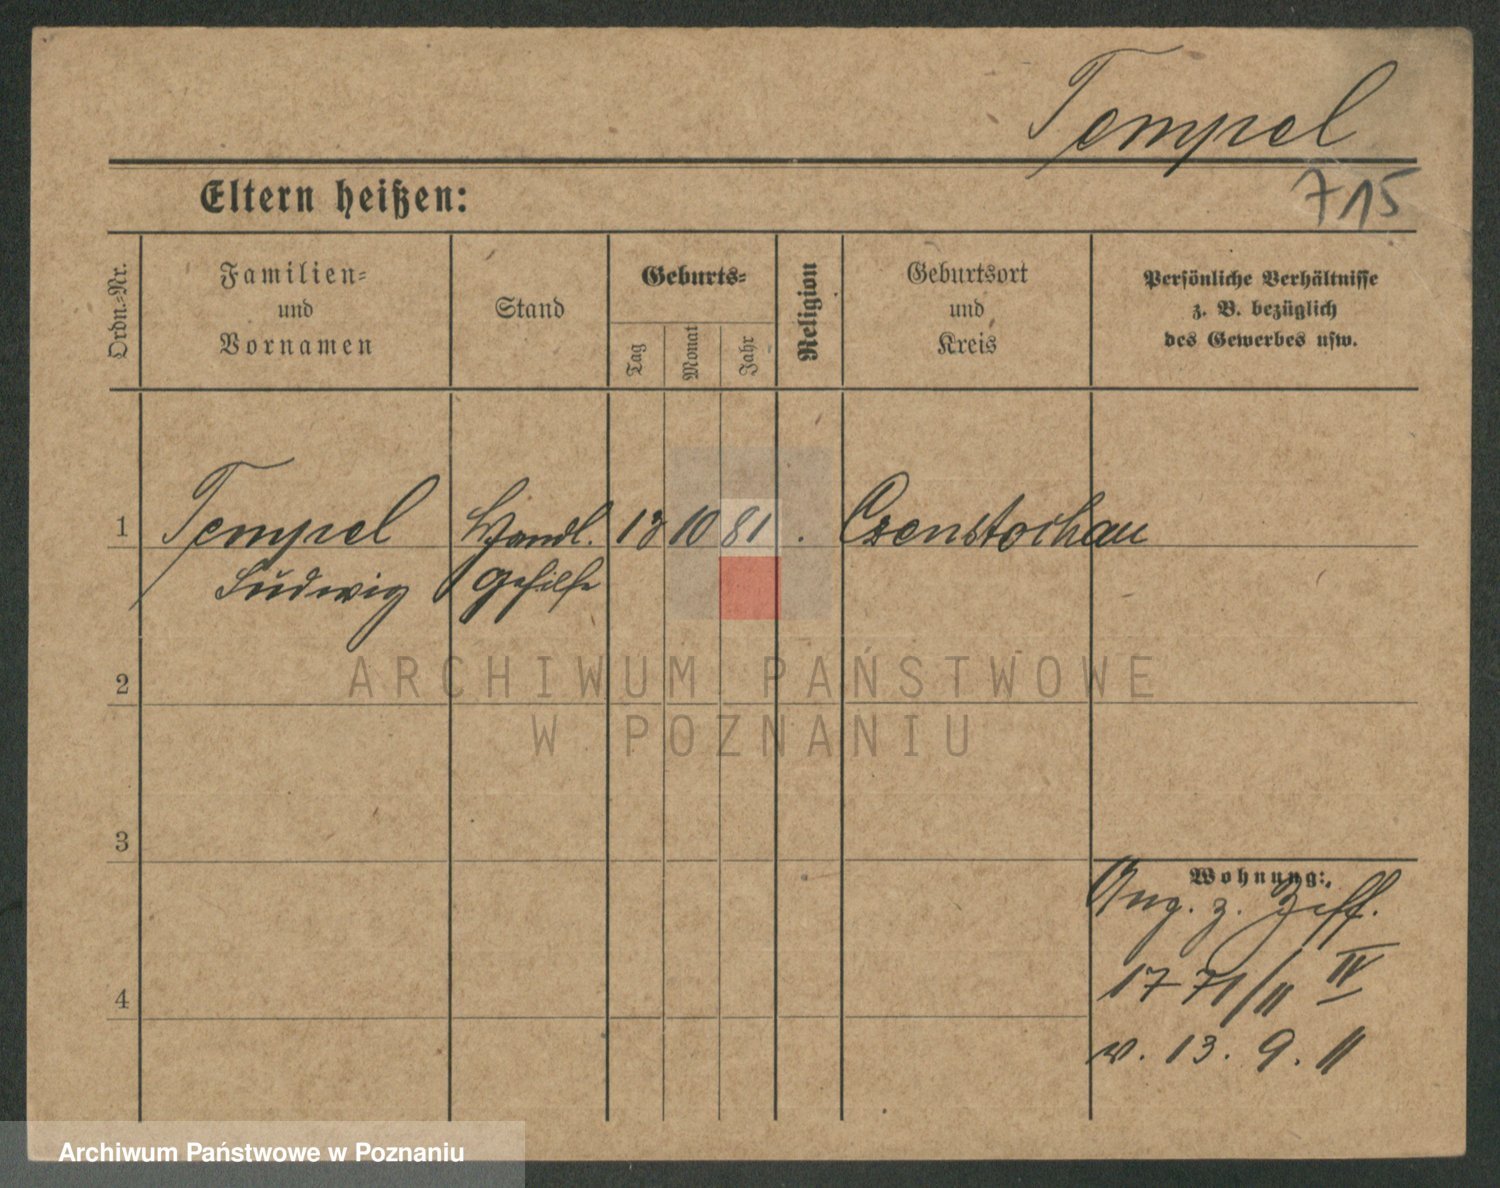 Tempel
Eltern heißen:
715
Ordn.-Nr.
Familien-
und
Vornamen
Stand
Geburts-
Tag
Monat
Jahr
Religion
Geburtsort
und
Kreis
Persönliche Verhältnisse
z. B. bezüglich
des Gewerbes usw.
1 Tempel Handl. 18 10 81 . Czenstochau
Ludwig Gehilfe
2
ARCHIWUM PAŃSTWOWE
W POZNANIU
3
Wohnung:
Ang. z.
4
1771/11 IV
v. 13. 9. 11
Archiwum Państwowe w Poznaniu